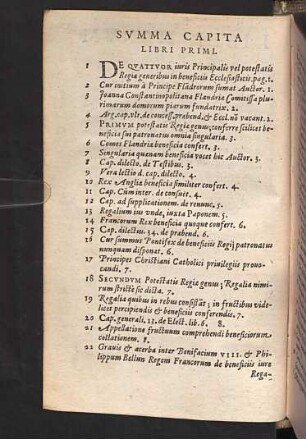 SVMMA CAPITA
LIBRI PRIMI.
1 DE QVATTVOR iuris Principalis vel potestatis
Regiæ generibus in beneficiis Ecclesiasticis. pag. 1.
2 Cur initium à Principe Flādrorum sumat Auctor. 1.
3 Ioanna Constantinopolitana Flandriæ Comitissa plu-
rimarum domorum piarum fundatrix. 2.
4 Arg. cap. vlt. de concess. præbend. & Eccl. nō vacant. 2.
5 PRIMVM potestatis Regiæ genus, conferre scilicet be-
neficia sui patronatus omnia singularia. 3.
6 Comes Flandriæ beneficia confert. 3.
7 Singularia quænam beneficia vocet hic Auctor. 3.
8 Cap. dilecto. de Testibus. 3.
9 Vera lectio d. cap. dilecto. 4.
10 Rex Angliæ beneficia similiter confert. 4.
11 Cap. Cùm inter. de consuet. 4.
12 Cap. ad supplicationem. de renunc. 5.
13 Regalium ius vnde, iuxta Paponem. 5.
14 Francorum Rex beneficia quoque confert. 6.
15 Cap. dilectus. 34. de præbend. 6.
16 Cur summus Pontifex de beneficiis Regij patronatus
nunquam disponat. 6.
17 Principes Christiani Catholici priuilegiis prouo-
candi. 7.
18 SECVNDVM Potestatis Regiæ genus, Regalia nimi-
rum strictè sic dicta. 7.
19 Regalia quibus in rebus consistāt; in fructibus vide-
licet percipiendis & beneficiis conferendis. 7.
20 Cap. generali. 13. de Elect. lib. 6. 8.
21 Appellatione fructuum comprehendi beneficiorum
collationem. 8.
22 Grauis & acerba inter Bonifacium VIII. & Phi-
lippum Bellum Regem Francorum de beneficiis iure
Rega-